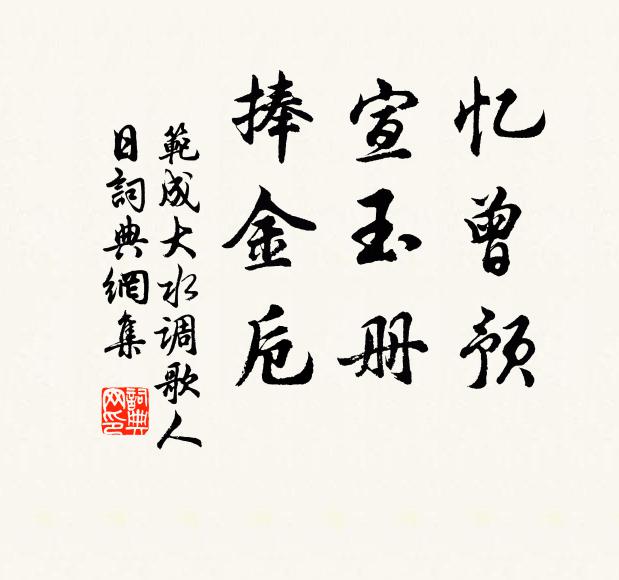 忆曾预
宣玉册
捧金卮
範成大水调歌人
日詞典網集
詞典网印